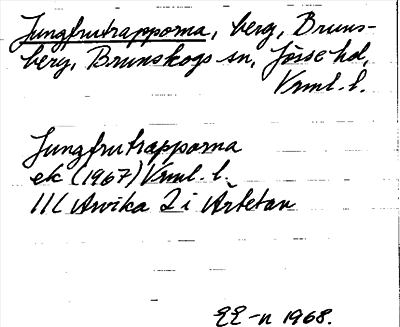 Jungfrutrapporna, berg, Bruns-
berg, Brunskogs sn, Jösse hd,
Vrml. l.
Jungfrutrapporna
ek (1967) Vrml. l.
11C Arvika 2 i Ärtetan
EE-n 1968.